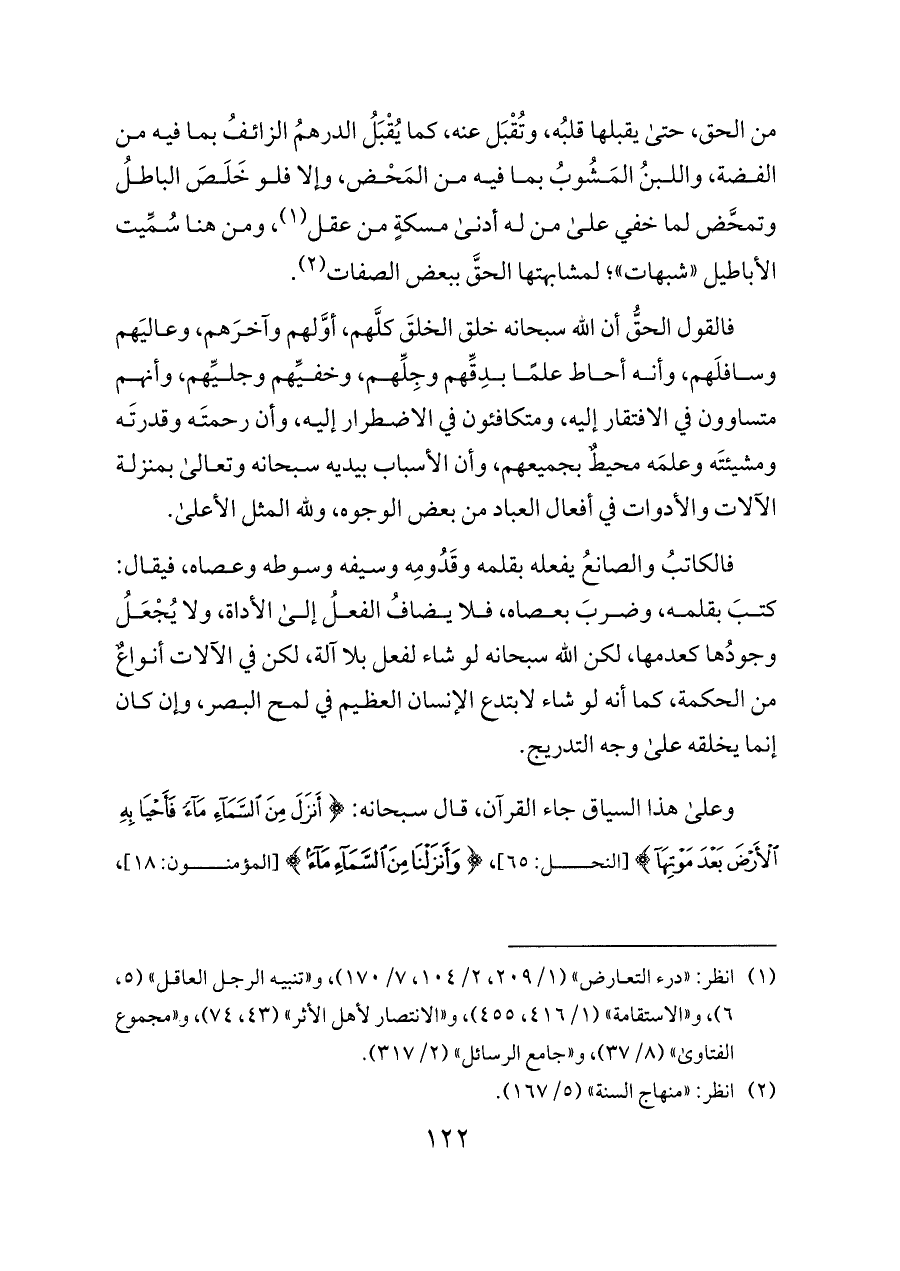 من الحق، حتىٰ يقبلها قلبُه، وتُقْبَل عنه، كما يُقْبَلُ الدرهمُ الزائفُ بما فيه من
الفضة، واللبنُ المَشُوبُ بما فيه من المَحْض، وإلا فلو خَلَصَ الباطلُ
وتمحَّض لما خفي علىٰ من له أدنىٰ مسكةٍ من عقل(١)، ومن هنا سُمِّيت
الأباطيل «شبهات»؛ لمشابهتها الحقَّ ببعض الصفات(٢).
فالقول الحقُّ أن الله سبحانه خلق الخلقَ كلَّهم، أوَّلهم وآخرَهم، وعاليَهم
وسافلَهم، وأنه أحاط علمًا بدِقِّهم وجِلِّهم، وخفيِّهم وجليِّهم، وأنهم
متساوون في الافتقار إليه، ومتكافئون في الاضطرار إليه، وأن رحمتَه وقدرتَه
ومشيئتَه وعلمَه محيطٌ بجميعهم، وأن الأسباب بيديه سبحانه وتعالىٰ بمنزلة
الآلات والأدوات في أفعال العباد من بعض الوجوه، ولله المثل الأعلىٰ.
فالكاتبُ والصانعُ يفعله بقلمه وقَدُومِه وسيفه وسوطه وعصاه، فيقال:
كتبَ بقلمه، وضربَ بعصاه، فلا يضافُ الفعلُ إلىٰ الأداة، ولا يُجْعَلُ
وجودُها كعدمها، لكن الله سبحانه لو شاء لفعل بلا آلة، لكن في الآلات أنواعٌ
من الحكمة، كما أنه لو شاء لابتدع الإنسان العظيم في لمح البصر، وإن كان
إنما يخلقه علىٰ وجه التدريج.
وعلىٰ هذا السياق جاء القرآن، قال سبحانه: ﴿ أَنزَلَ مِنَ ٱلسَّمَآءِ مَآءً فَأَحْيَا بِهِ
ٱلْأَرْضَ بَعْدَ مَوْتِهَآ ﴾ [النحل: ٦٥]، ﴿ وَأَنزَلْنَا مِنَ ٱلسَّمَآءِ مَآءً ﴾ [المؤمنون: ١٨]،
(١) انظر: «درء التعارض» (١/ ٢٠٩، ٢/ ١٠٤، ٧/ ١٧٠)، و«تنبيه الرجل العاقل» (٥،
٦)، و«الاستقامة» (١/ ٤١٦، ٤٥٥)، و«الانتصار لأهل الأثر» (٤٣، ٧٤)، و«مجموع
الفتاوىٰ» (٨/ ٣٧)، و«جامع الرسائل» (٢/ ٣١٧).
(٢) انظر: «منهاج السنة» (٥/ ١٦٧).
١٢٢